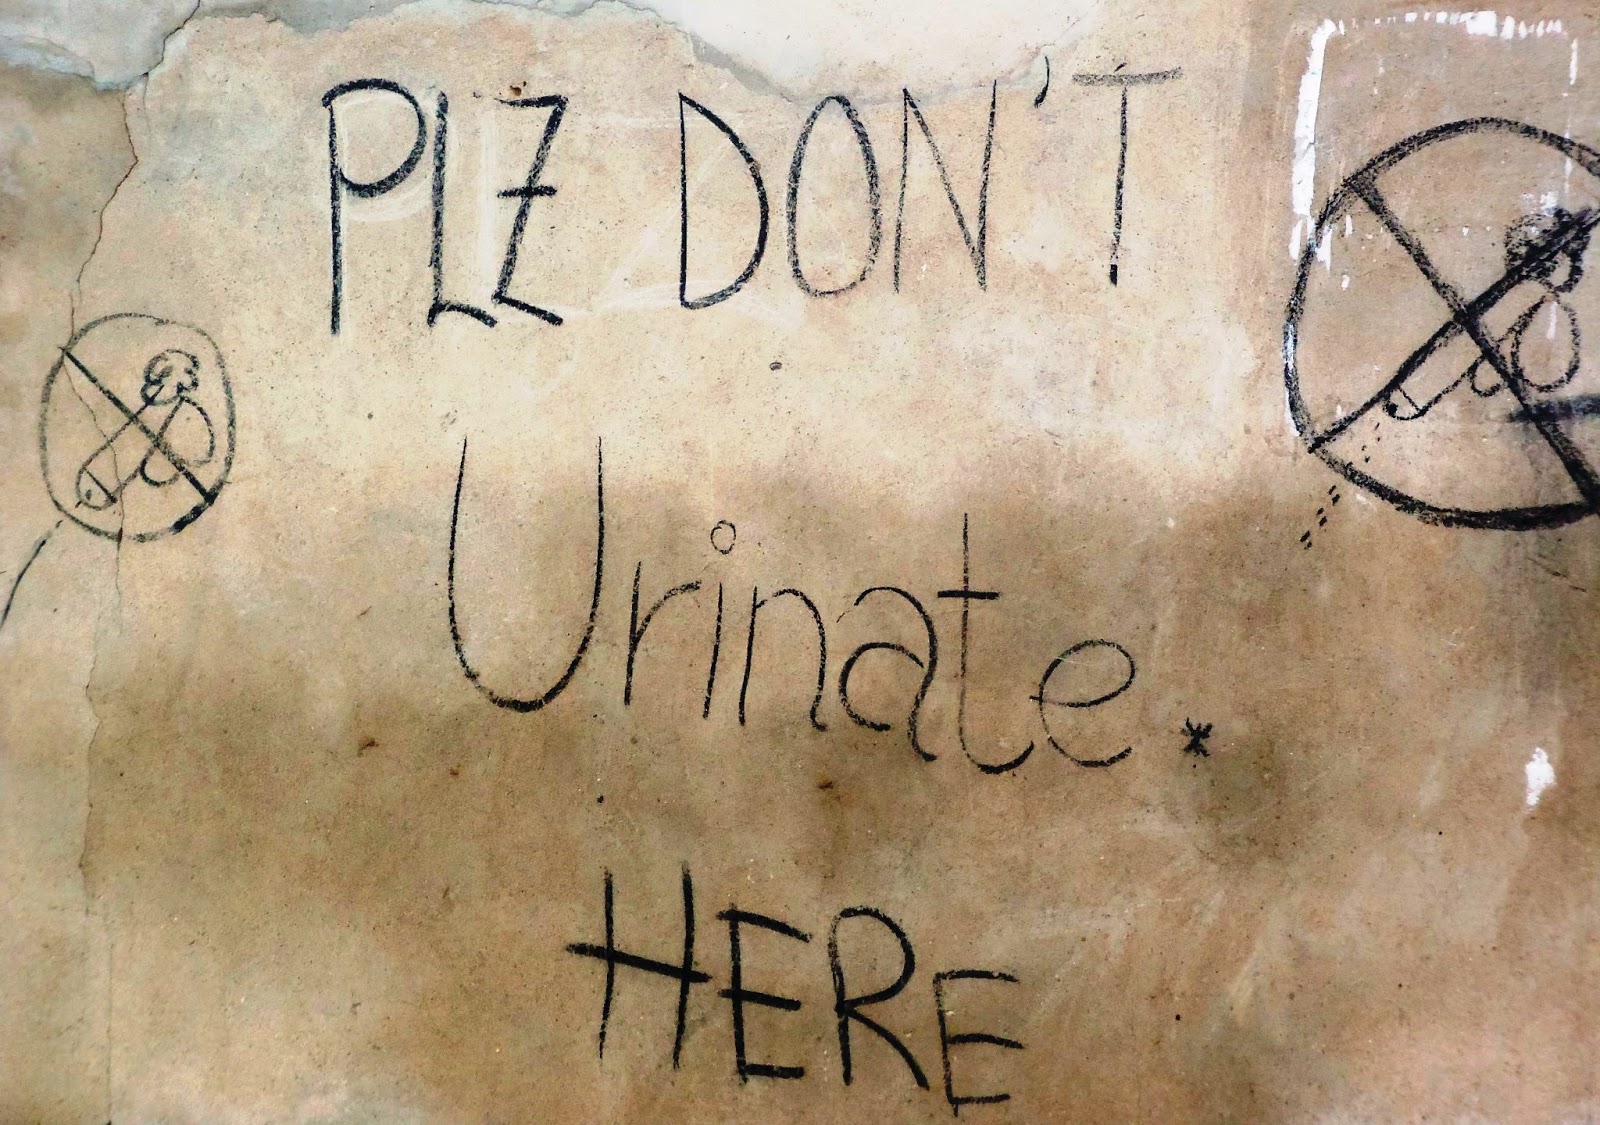 PLZ DON'T
Urinate.
HERE